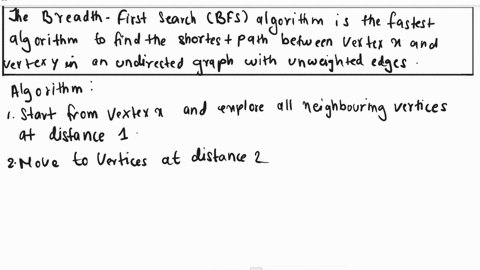 The Breadth-First Search (BFS) algorithm is the fastest
algorithm to find the shortest path between vertex x and
vertex y in an undirected graph with unweighted edges.
Algorithm:
1. Start from vextex x and explore all neighbouring vertices
at distance 1.
2. Move to Vertices at distance 2